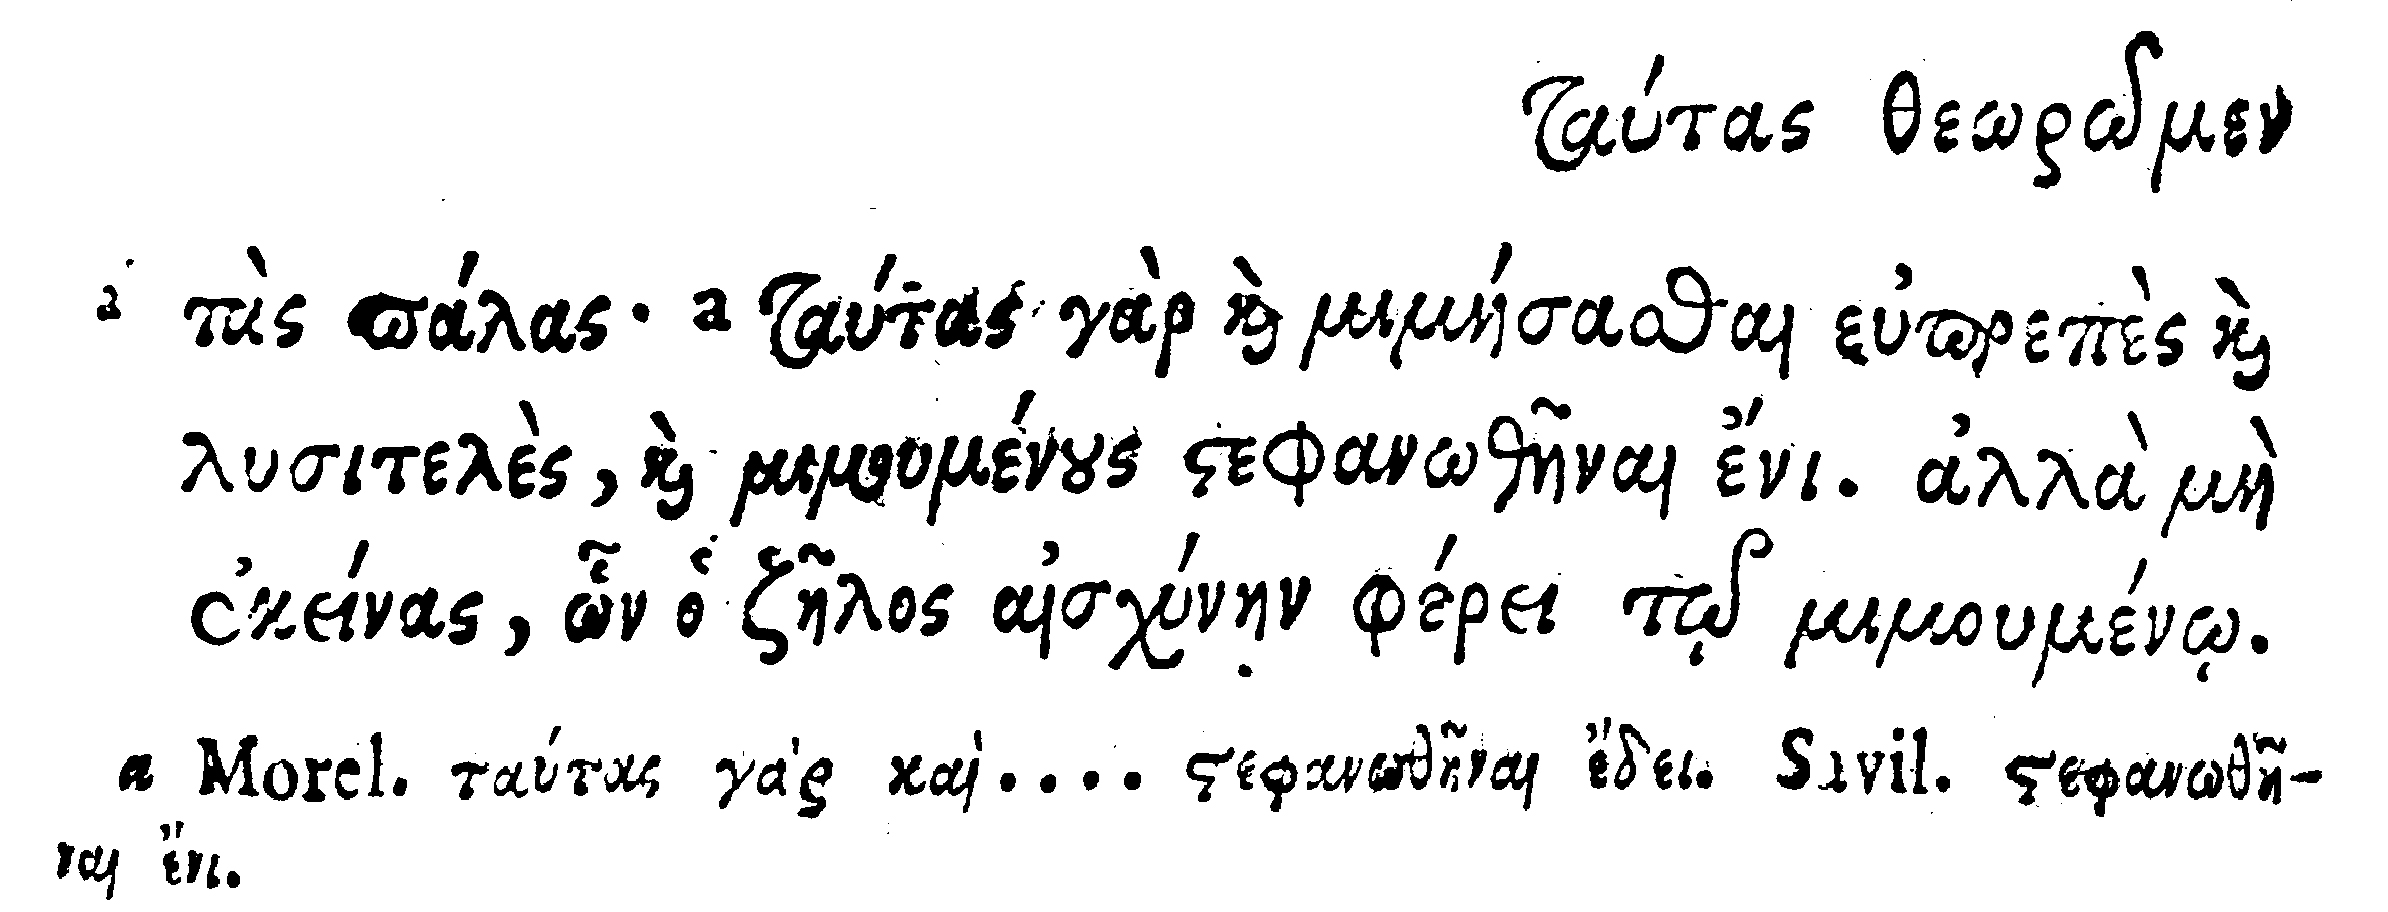 ταύτας θεωρῶμεν
a τὰς πάλας· a ταύτας γὰρ καὶ μιμήσασθαι εὐπρεπὲς καὶ
λυσιτελὲς, καὶ μιμουμένους στεφανωθῆναι ἔνι. ἀλλὰ μὴ
ἐκείνας, ὧν ὁ ζῆλος αἰσχύνην φέρει τῷ μιμουμένῳ.
a Morel. ταύτας γὰρ καὶ.... στεφανωθῆναι ἔδει. Savil. στεφανωθῆ-
ναι ἔνι.